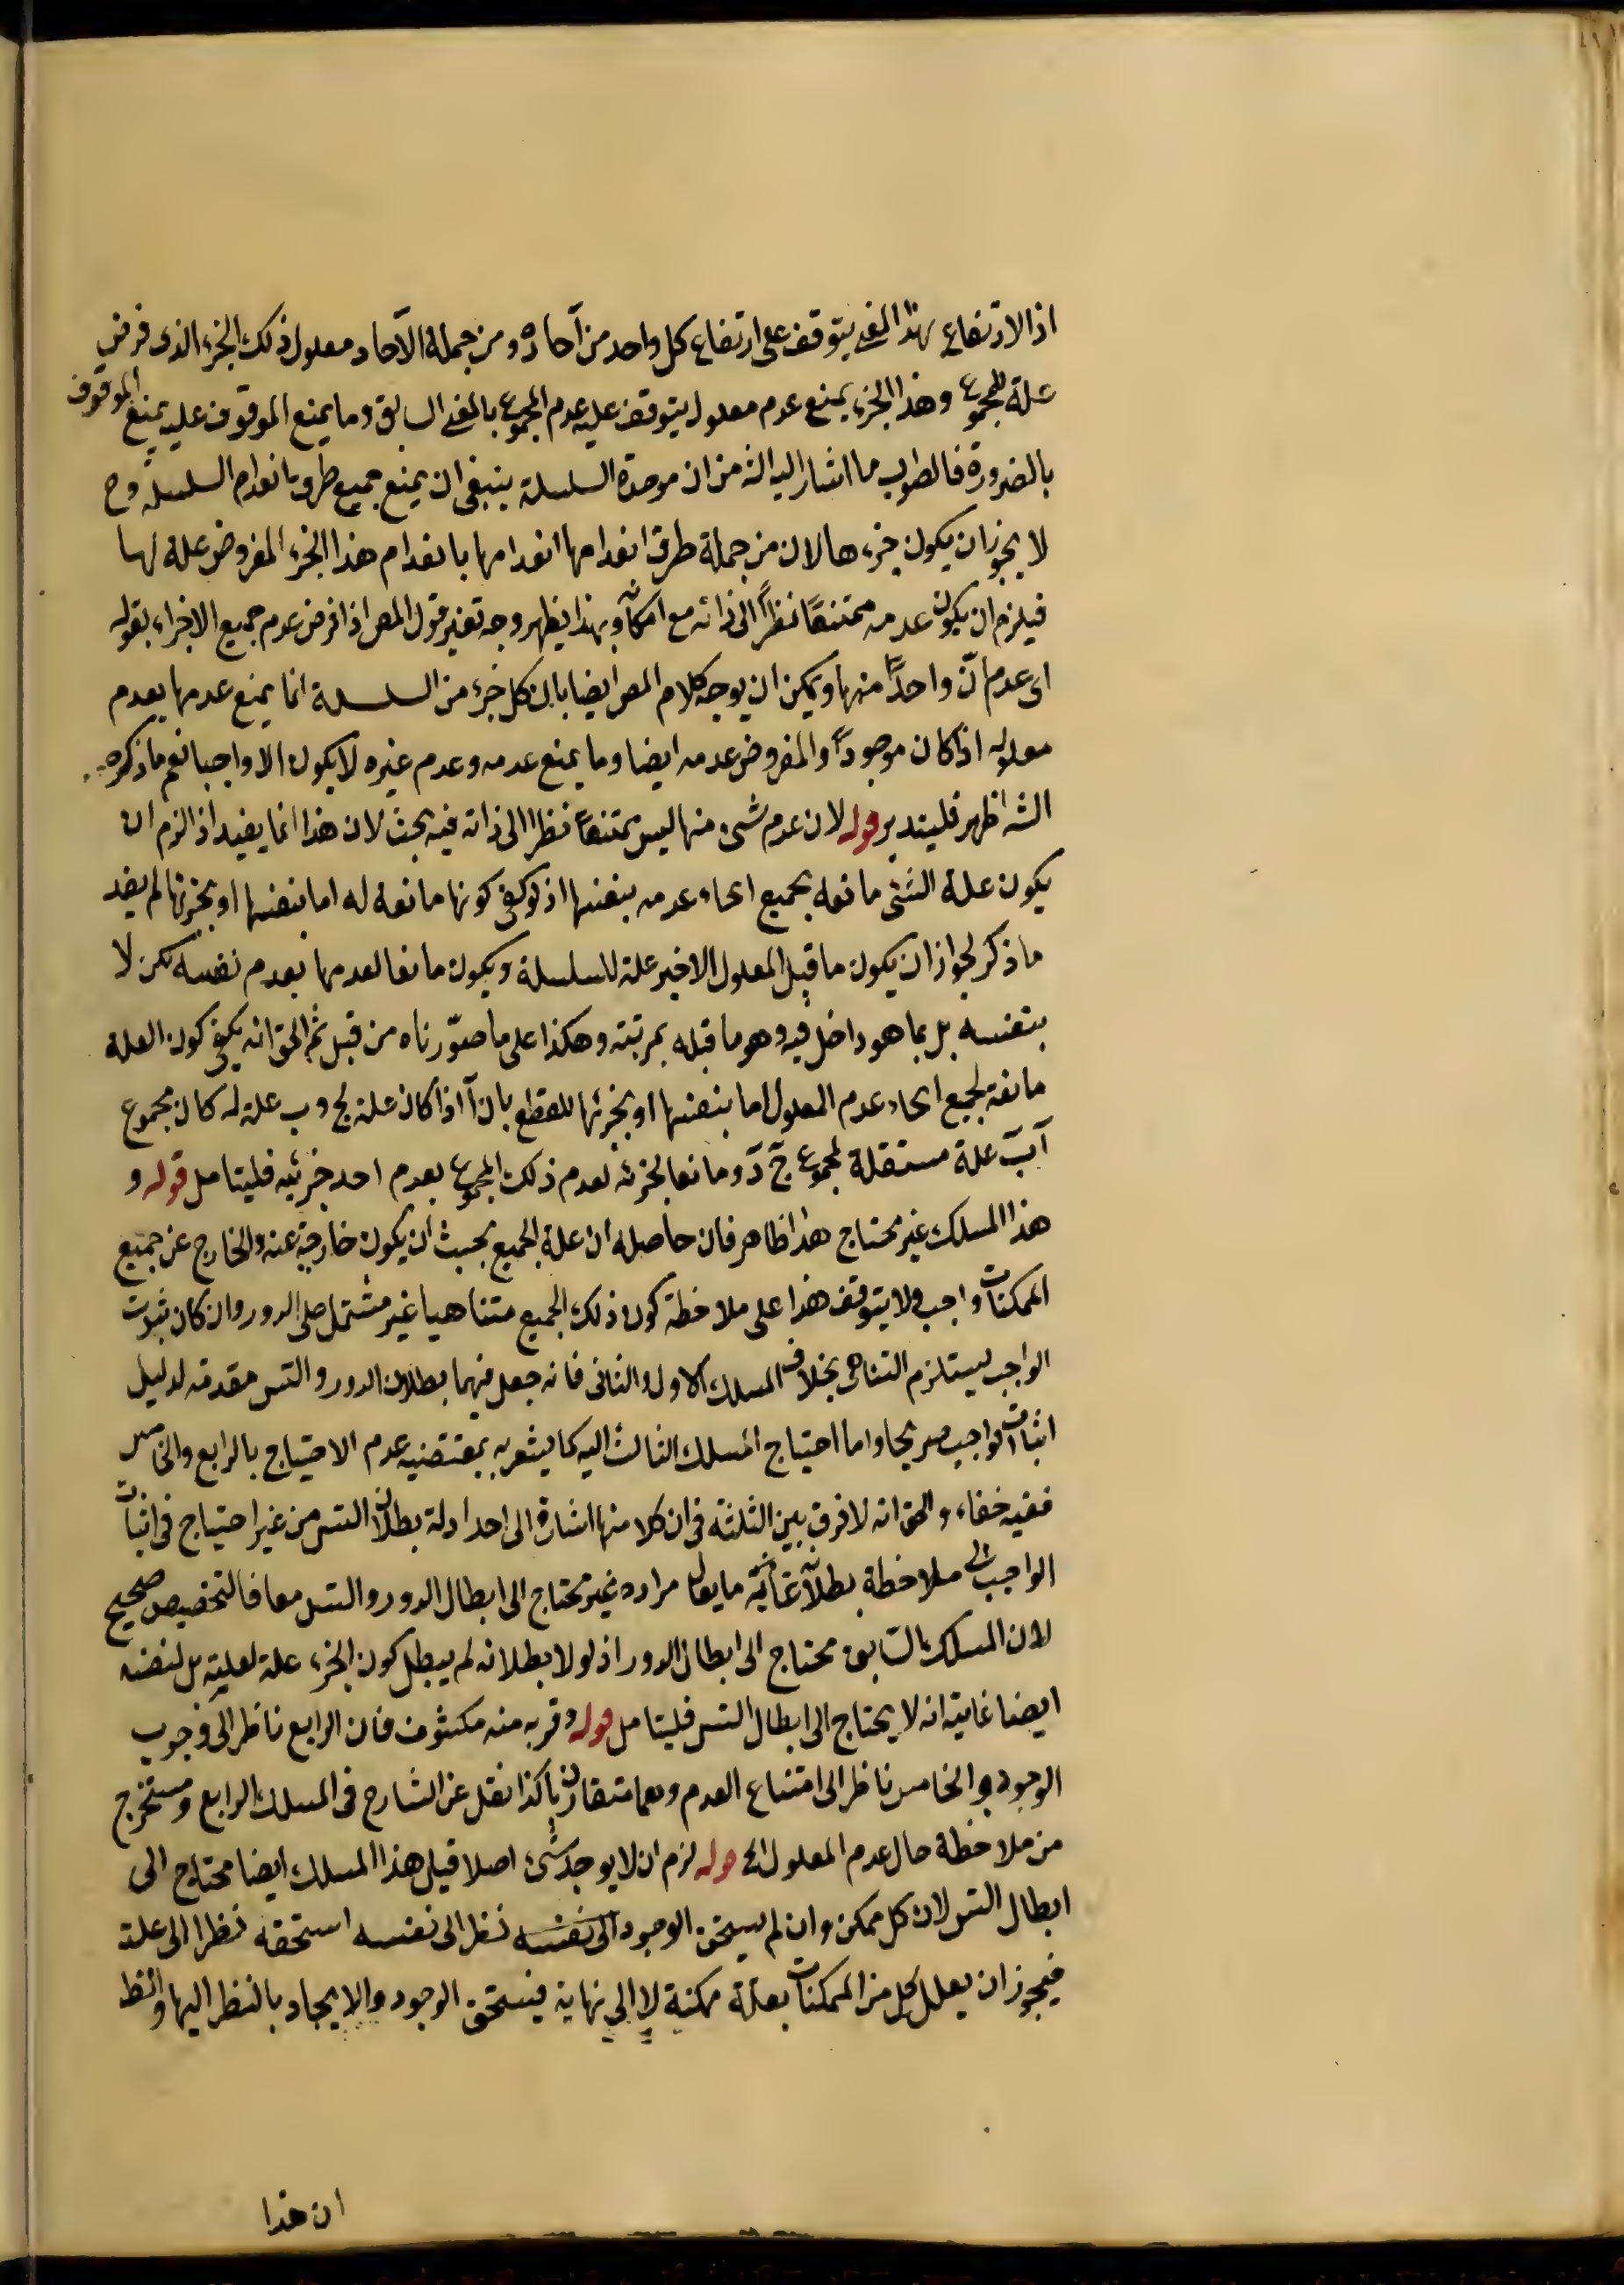 اذ الارتفاع بهذا المعنى يتوقف على ارتفاع كل واحد من آحاده ومن جملة الآحاد معلول ذلك الجزء الذى فرض
علة للمجموع وهذا الجزء يمنع عدم معلول يتوقف عليه عدم المجموع بالمعنى السابق وما يمنع الموقوف عليه يمنع الموقوف
بالضرورة فالصواب ما اشار اليه الش من ان موجدة السلسلة ينبغى ان يمنع جميع طرق انعدام السلسلة وح
لا يجوز ان يكون جزءها لان من جملة طرق انعدامها انعدامها بانعدام هذا الجزء المفروض علة لها
فيلزم ان يكون عدمه ممتنعًا نظرًا الى ذاته مع امكانه وبهذا يظهر وجه تفسير قول المص اذا فرض عدم جميع الاجزاء بقوله
اى عدم اىّ واحدًا منها ويمكن ان يوجه كلام المص ايضا بان كل جزء من السلسلة انما يمنع عدمها بعدم
معلوله اذا كان موجودًا والمفروض عدمه ايضا وما يمنع عدمه وعدم غيره لا يكون الا واجبا نعم ما ذكره
الش اظهر فليتدبر قوله لان عدم شىء منها ليس ممتنعًا نظرا الى ذاته فيه بحث لان هذا انما يفيد اذا لزم ان
يكون علة الشىء مانعة بجميع انحاء عدمه بنفسها اذ لو كفى كونها مانعة له اما بنفسها او بجزئها لم يفد
ما ذكر لجواز ان يكون ما قبل المعلول الاخير علة للسلسلة ويكون مانعا لعدمها بعدم نفسه لكن لا
بنفسه بل بما هو داخل فيه وهو ما قبله بمرتبة وهكذا على ما صوّرناه من قبل ثم الحق انه يكفى كون العلة
مانعة لجميع انحاء عدم المعلول اما بنفسها او بجزئها للقطع بان آ اذا كان علة لج وب علة لد كان مجموع
آ ب علة مستقلة لمجموع ج د ومانعا بجزئه لعدم ذلك المجموع بعدم احد جزئيه فليتامل قوله و
هذا المسلك غير محتاج هذا ظاهر فان حاصله ان علة الجميع يجب ان يكون خارجة عنه والخارج عن جميع
الممكنات واجب ولا يتوقف هذا على ملاحظة كون ذلك الجميع متناهيا غير مشتمل على الدور وان كان ثبوت
الواجب يستلزم التناهى بخلاف المسلك الاول والثانى فانه جعل فيهما بطلان الدور والتس مقدمة لدليل
اثبات الواجب صريحا واما احتياج المسلك الثالث اليه كما يشعر به بمقتضيه عدم الاحتياج بالرابع والخامس
ففيه خفاء والحق انه لا فرق بين الثلثة فى ان كلا منها اشارة الى احد ادلة بطلان التس من غير احتياج فى اثبات
الواجب الى ملاحظة بطلانه غاية ما يقال مراده غير محتاج الى ابطال الدور والتس معا فالتخصيص صحيح
لان المسلك السابق محتاج الى ابطال الدور اذ لولا بطلانه لم يبطل كون الجزء علة لعليته بل لنفسه
ايضا غايته انه لا يحتاج الى ابطال التس فليتامل قوله وقربه منه مكشوف فان الرابع ناظر الى وجوب
الوجود والخامس ناظر الى امتناع العدم وهما متقاربان كذا نقل عن الشارح فى المسلك الرابع ومستخرج
من ملاحظة حال عدم المعلول الخ قوله لزم ان لا يوجد شىء اصلا قيل هذا المسلك ايضا محتاج الى
ابطال التس لان كل ممكن وان لم يستحق الوجود الى نفسه نظرا الى نفسه استحقه نظرا الى علة
فيجوز ان يعلل كل من الممكنات بعلة ممكنة لا الى نهاية فيستحق الوجود والايجاد بالنظر اليها والظ
ان هذا